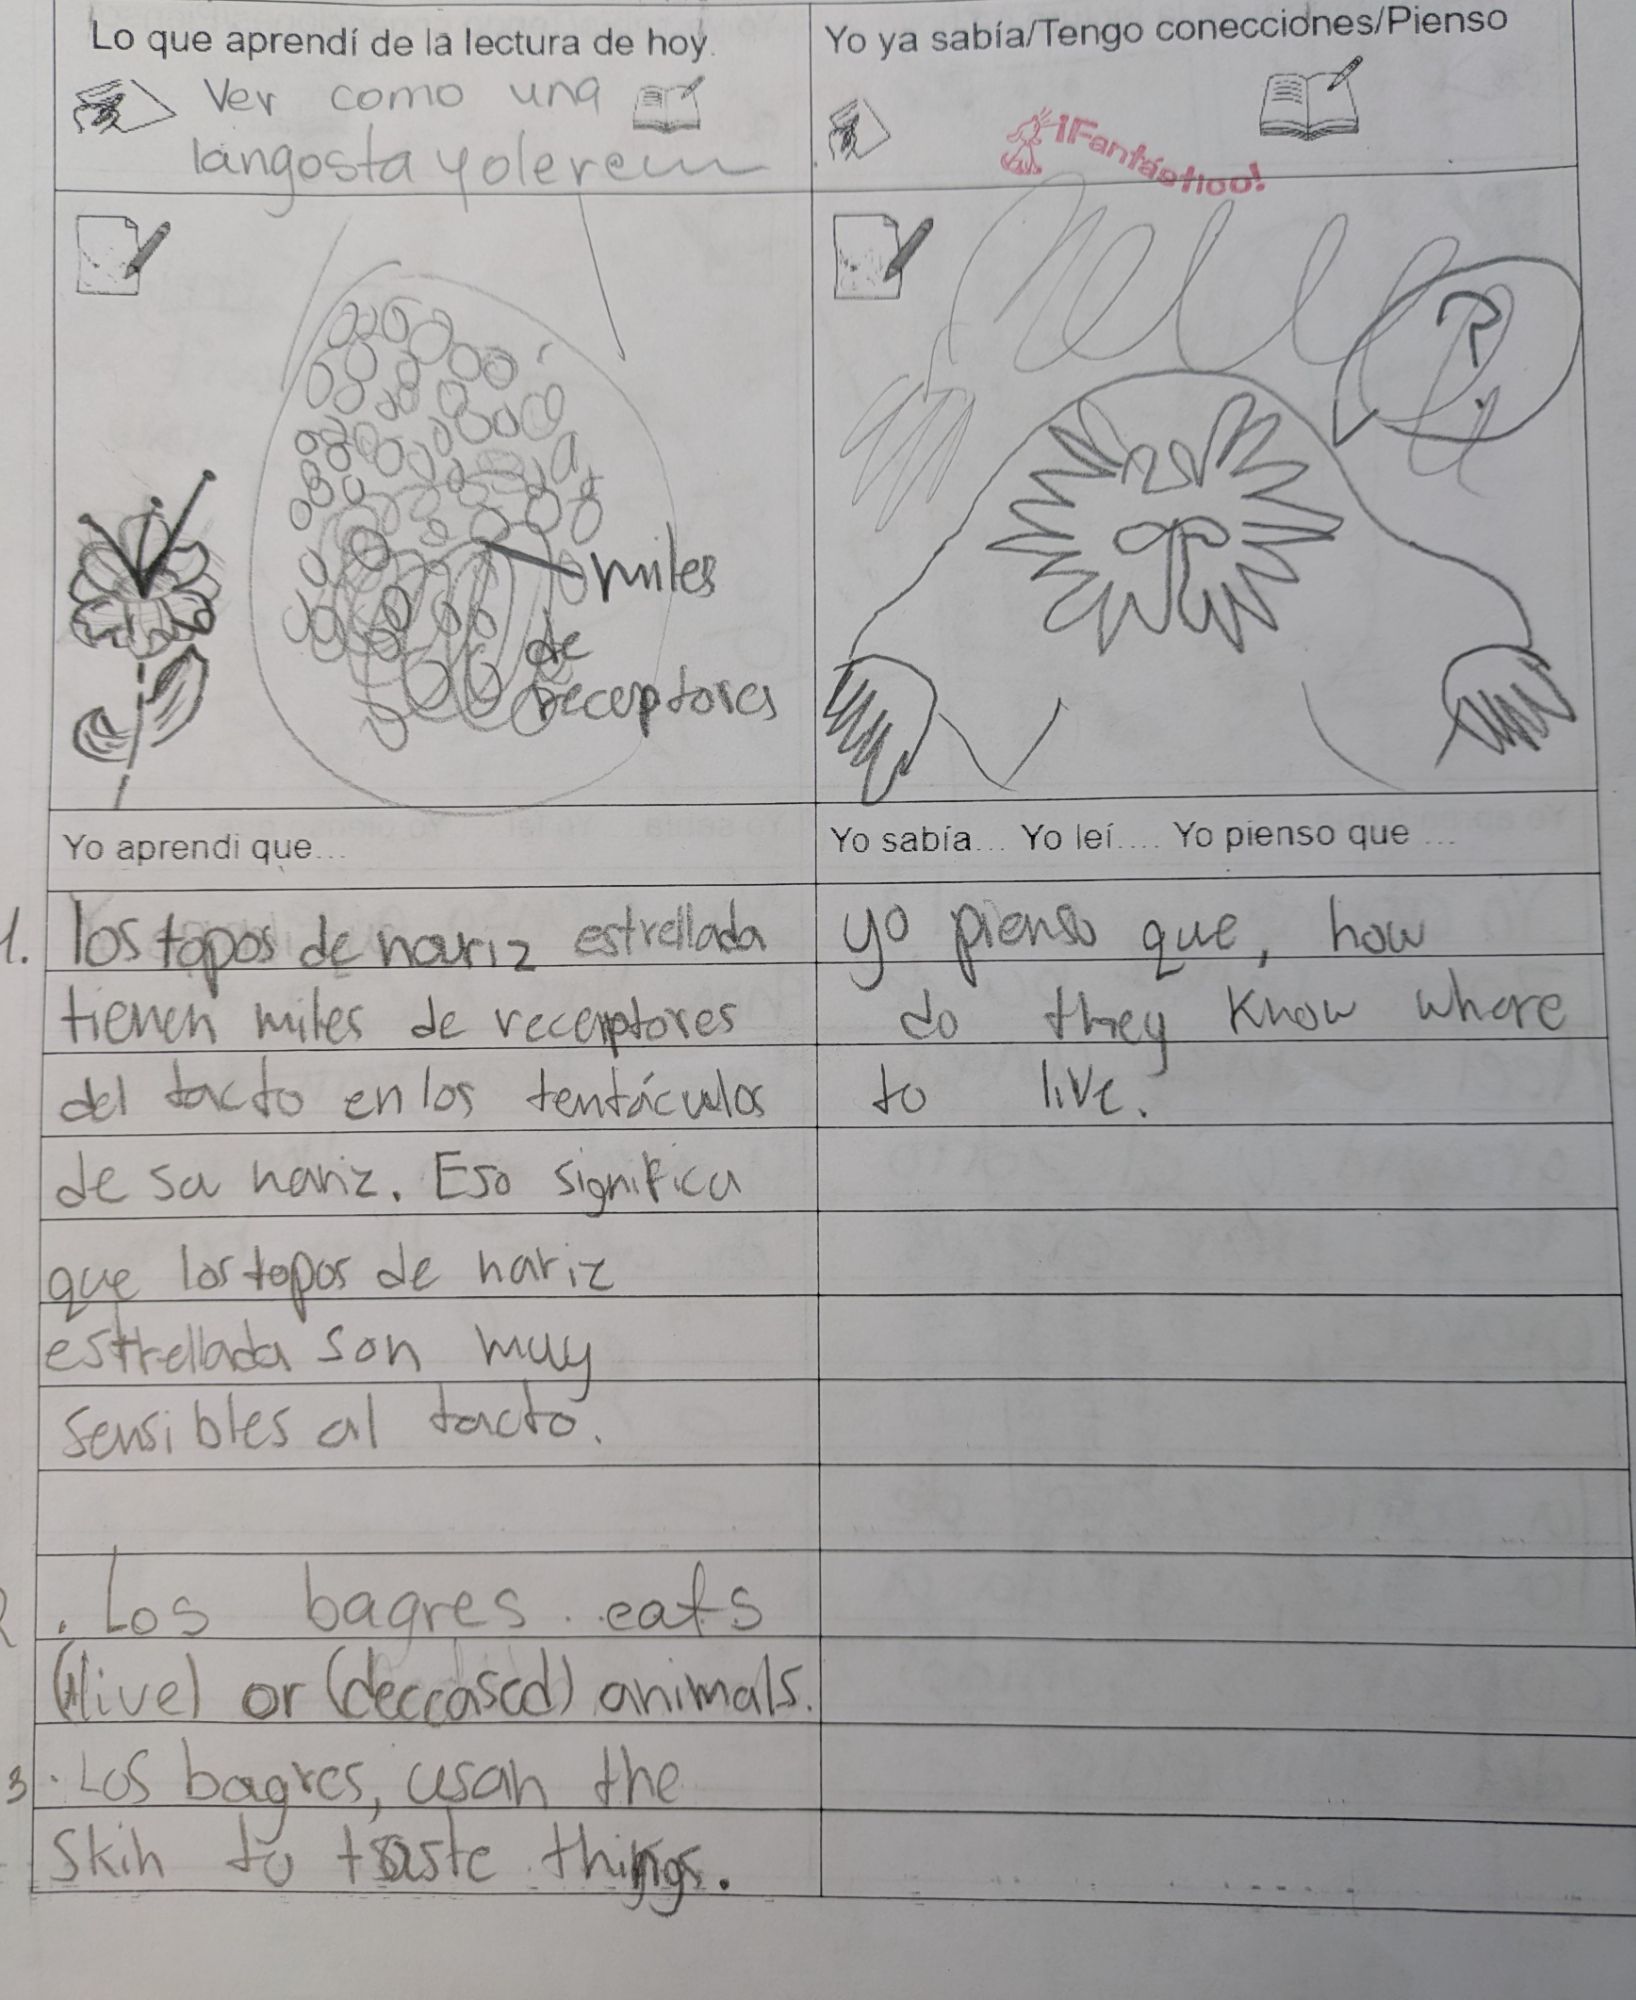 Lo que aprendí de la lectura de hoy.
Ver como una
langosta y oler
Yo ya sabía/Tengo conecciones/Pienso
¡Fantástico!
miles
de
receptores
?
Yo aprendi que...
1. los topos de nariz estrellada
tienen miles de receptores
del tacto en los tentáculos
de su nariz. Eso significa
que los topos de nariz
estrellada son muy
sensibles al tacto.
2. Los bagres eats
(Alive) or (deceased) animals.
3. Los bagres, usan the
skin to taste things.
Yo sabía... Yo leí.... Yo pienso que ...
yo pienso que, how
do they know where
to live.